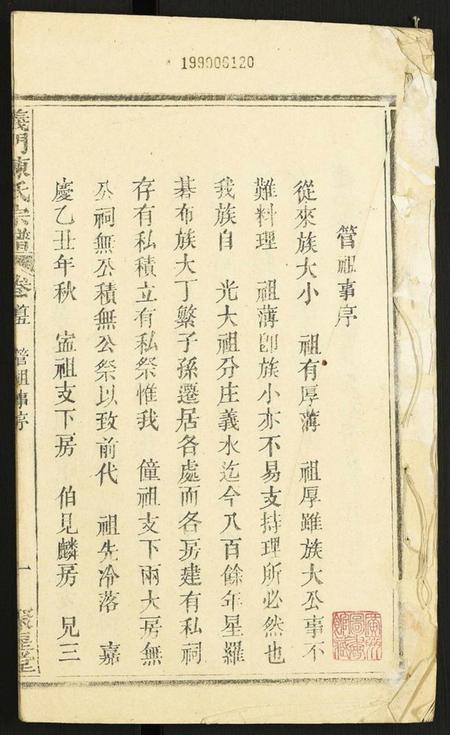 199006120
管祖事序
從來族大小　祖有厚薄　祖厚雖族大公事不
難料理　祖薄卽族小亦不易支持理所必然也
我族自　光大祖分庄義水迄今八百餘年星羅
碁布族大丁繁子孫遷居各處而各房建有私祠
存有私積立有私祭惟我　僮祖支下兩大房無
公祠無公積無公祭以致前代　祖先冷落　嘉
慶乙丑年秋　寔祖支下房　伯見麟房　兄三
義門陳氏宗譜　卷首　管祖事序　一　聚星堂